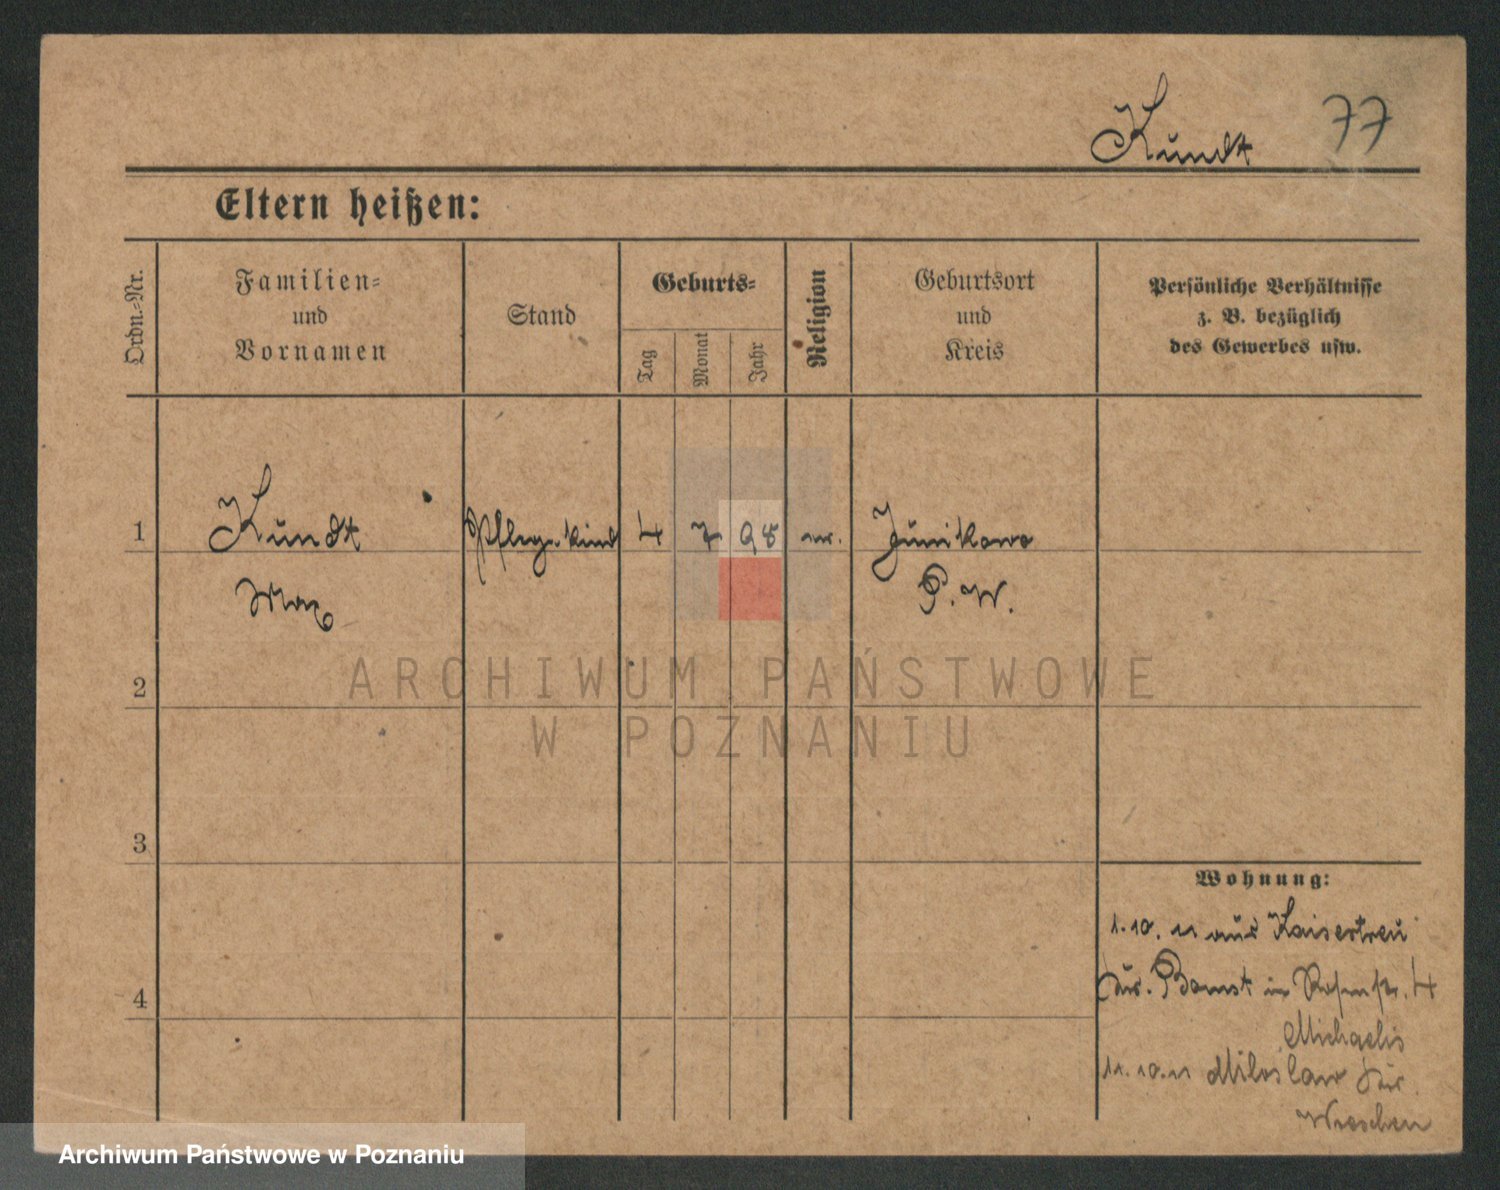 Kundt 77
Eltern heißen:
Ordn.-Nr.
Familien-
und
Vornamen
Stand
Geburts-
Tag
Monat
Jahr
Religion
Geburtsort
und
Kreis
Persönliche Verhältnisse
z. B. bezüglich
des Gewerbes usw.
1 Kundt Pflegekind 4 7 98 Junikowo
Max P. W.
ARCHIWUM PAŃSTWOWE
W POZNANIU
2
3
4
Wohnung:
1.10.11 aus Kaisertreu
Krs. Bomst in 4
Michaelis
11.10.11 Miloslaw Krs.
Wreschen
Archiwum Państwowe w Poznaniu